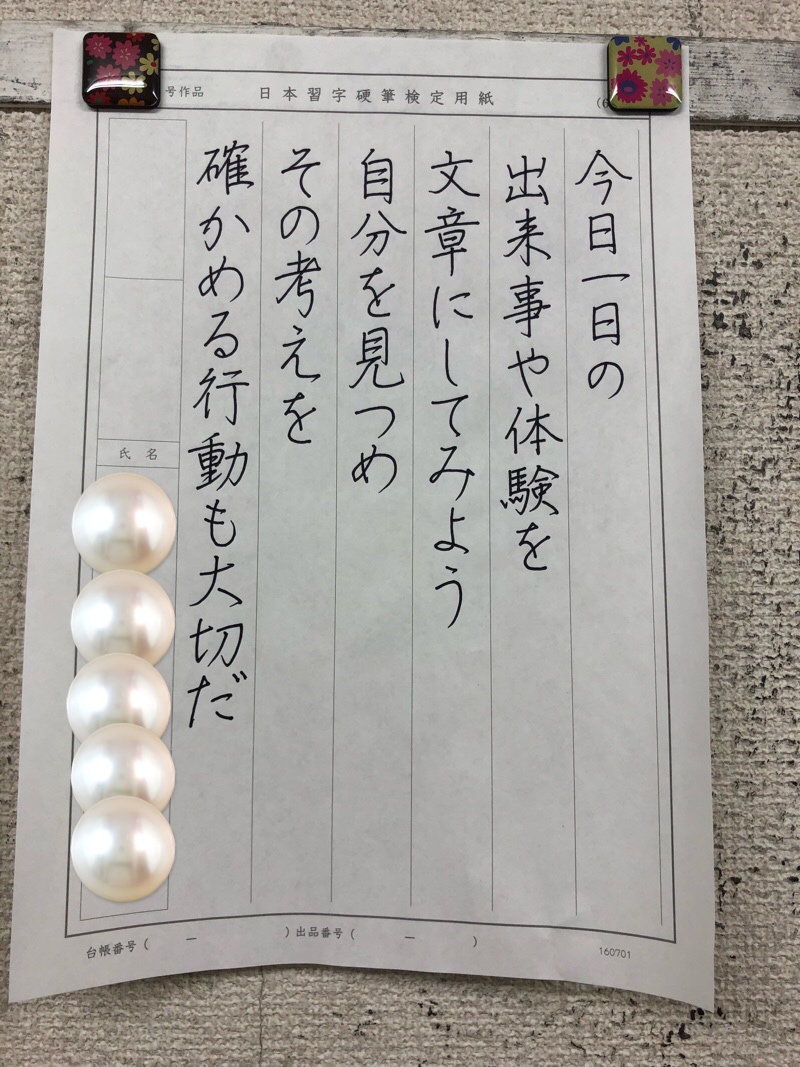 号作品
日本習字硬筆検定用紙
今日一日の
出来事や体験を
文章にしてみよう
自分を見つめ
その考えを
確かめる行動も大切だ
氏名
台帳番号( ー )出品番号( ー )
160701